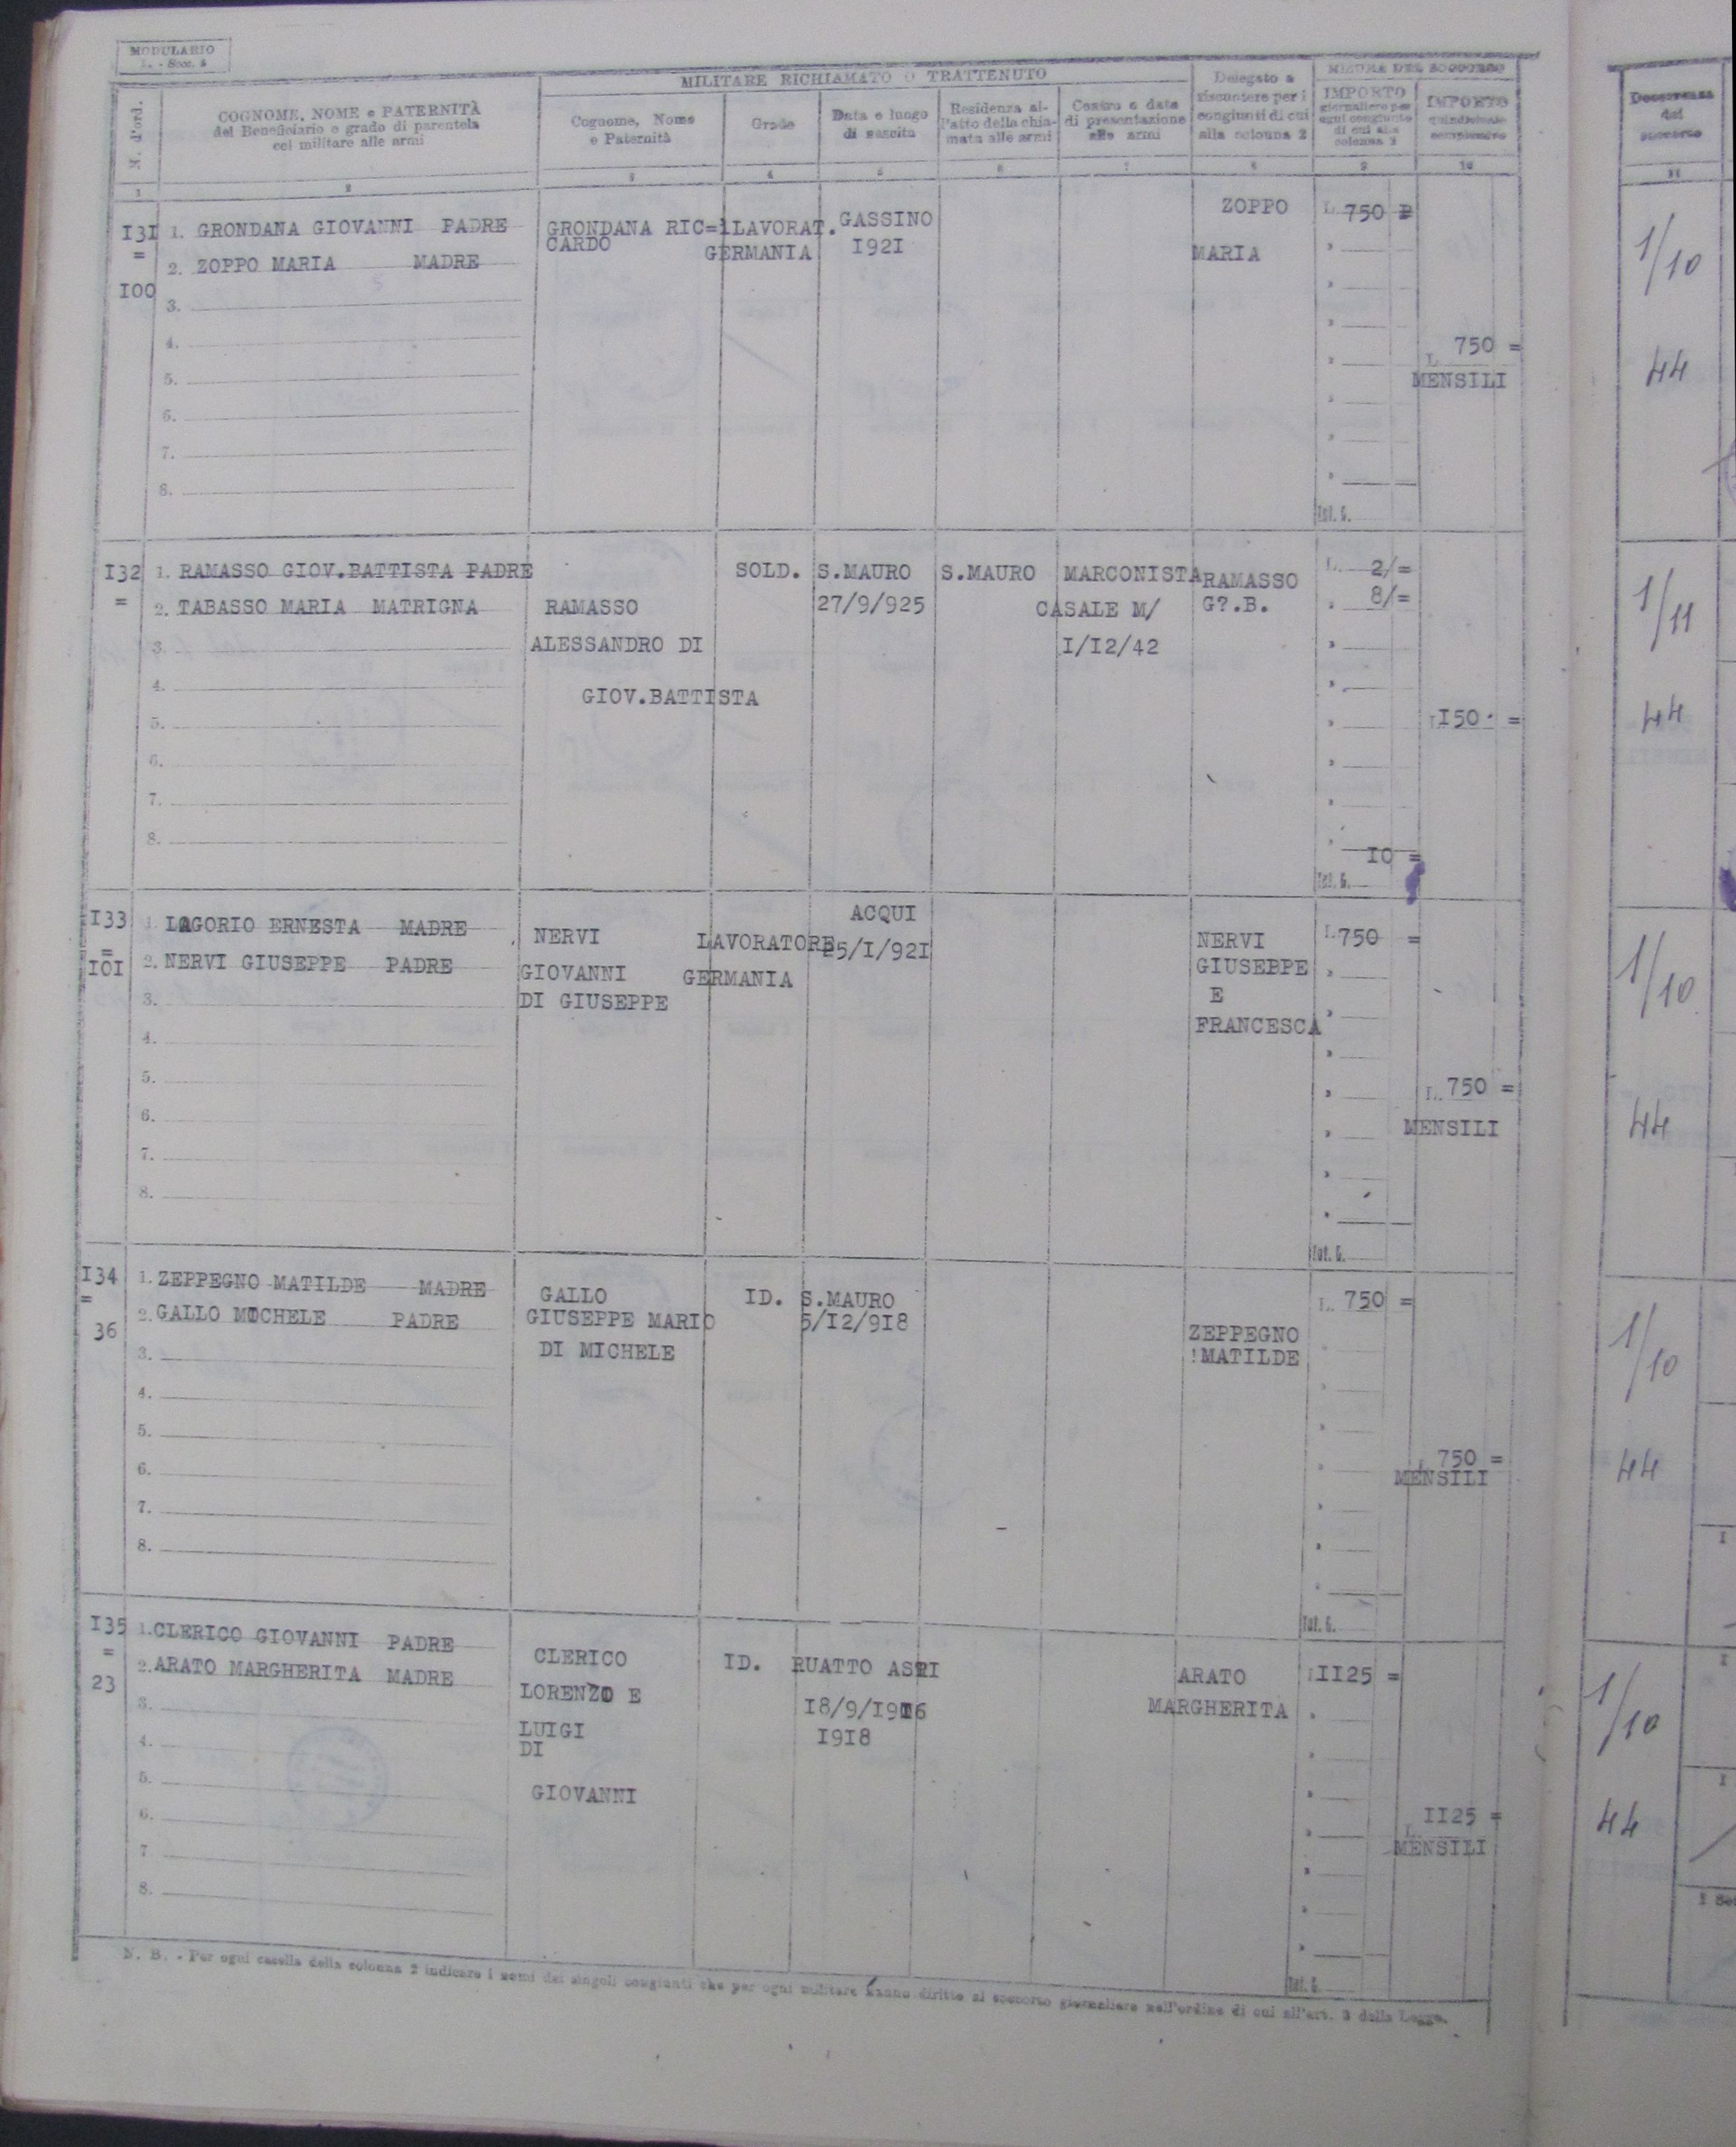 MODULARIO
L. - Socc. 5
N. d'ord.
COGNOME, NOME e PATERNITÀ
del Beneficiario e grado di parentela
col militare alle armi
MILITARE RICHIAMATO O TRATTENUTO
Cognome, Nome
e Paternità
Grado
Data e luogo
di nascita
Residenza al-
l'atto della chia-
mata alle armi
Centro e data
di presentazione
alle armi
Delegato a
riscuotere per i
congiunti di cui
alla colonna 2
MISURA DEL SOCCORSO
IMPORTO
giornaliero per
ogni congiunto
di cui alla
colonna 2
IMPORTO
quindicinale
complessivo
Decorrenza
del
soccorso
1 2 3 4 5 6 7 8 9 10 11
I3I
=
I00
1. GRONDANA GIOVANNI PADRE
2. ZOPPO MARIA MADRE
3.
4.
5.
6.
7.
8.
GRONDANA RIC=
CARDO
LAVORAT.
GERMANIA
GASSINO
I92I
ZOPPO
MARIA
L. 750
Tot. G.
L. 750 =
MENSILI
1/10
44
I32
=
1. RAMASSO GIOV.BATTISTA PADRE
2. TABASSO MARIA MATRIGNA
3.
4.
5.
6.
7.
8.
RAMASSO
ALESSANDRO DI
GIOV.BATTISTA
SOLD.
S.MAURO
27/9/925
S.MAURO
MARCONISTA
CASALE M/
I/I2/42
RAMASSO
G?.B.
L. 2/=
8/=
I0 =
Tot. G.
L I50 =
1/11
44
I33
=
I0I
1. LAGORIO ERNESTA MADRE
2. NERVI GIUSEPPE PADRE
3.
4.
5.
6.
7.
8.
NERVI
GIOVANNI
DI GIUSEPPE
LAVORATORE
GERMANIA
ACQUI
25/I/92I
NERVI
GIUSEPPE
E
FRANCESCA
L. 750 =
Tot. G.
L. 750 =
MENSILI
1/10
44
I34
=
36
1. ZEPPEGNO MATILDE MADRE
2. GALLO MICHELE PADRE
3.
4.
5.
6.
7.
8.
GALLO
GIUSEPPE MARIO
DI MICHELE
ID.
S.MAURO
5/I2/9I8
ZEPPEGNO
!MATILDE
L. 750 =
Tot. G.
L. 750 =
MENSILI
1/10
44
I35
=
23
1. CLERICO GIOVANNI PADRE
2. ARATO MARGHERITA MADRE
3.
4.
5.
6.
7
8.
CLERICO
LORENZO E
LUIGI
DI
GIOVANNI
ID.
RUATTO ASTI
I8/9/I9I6
I9I8
ARATO
MARGHERITA
L II25 =
Tot. G.
L. II25 =
MENSILI
1/10
44
N. B. - Per ogni casella della colonna 2 indicare i nomi dei singoli congiunti che per ogni militare hanno diritto al soccorso giornaliero nell'ordine di cui all'art. 3 della Legge.